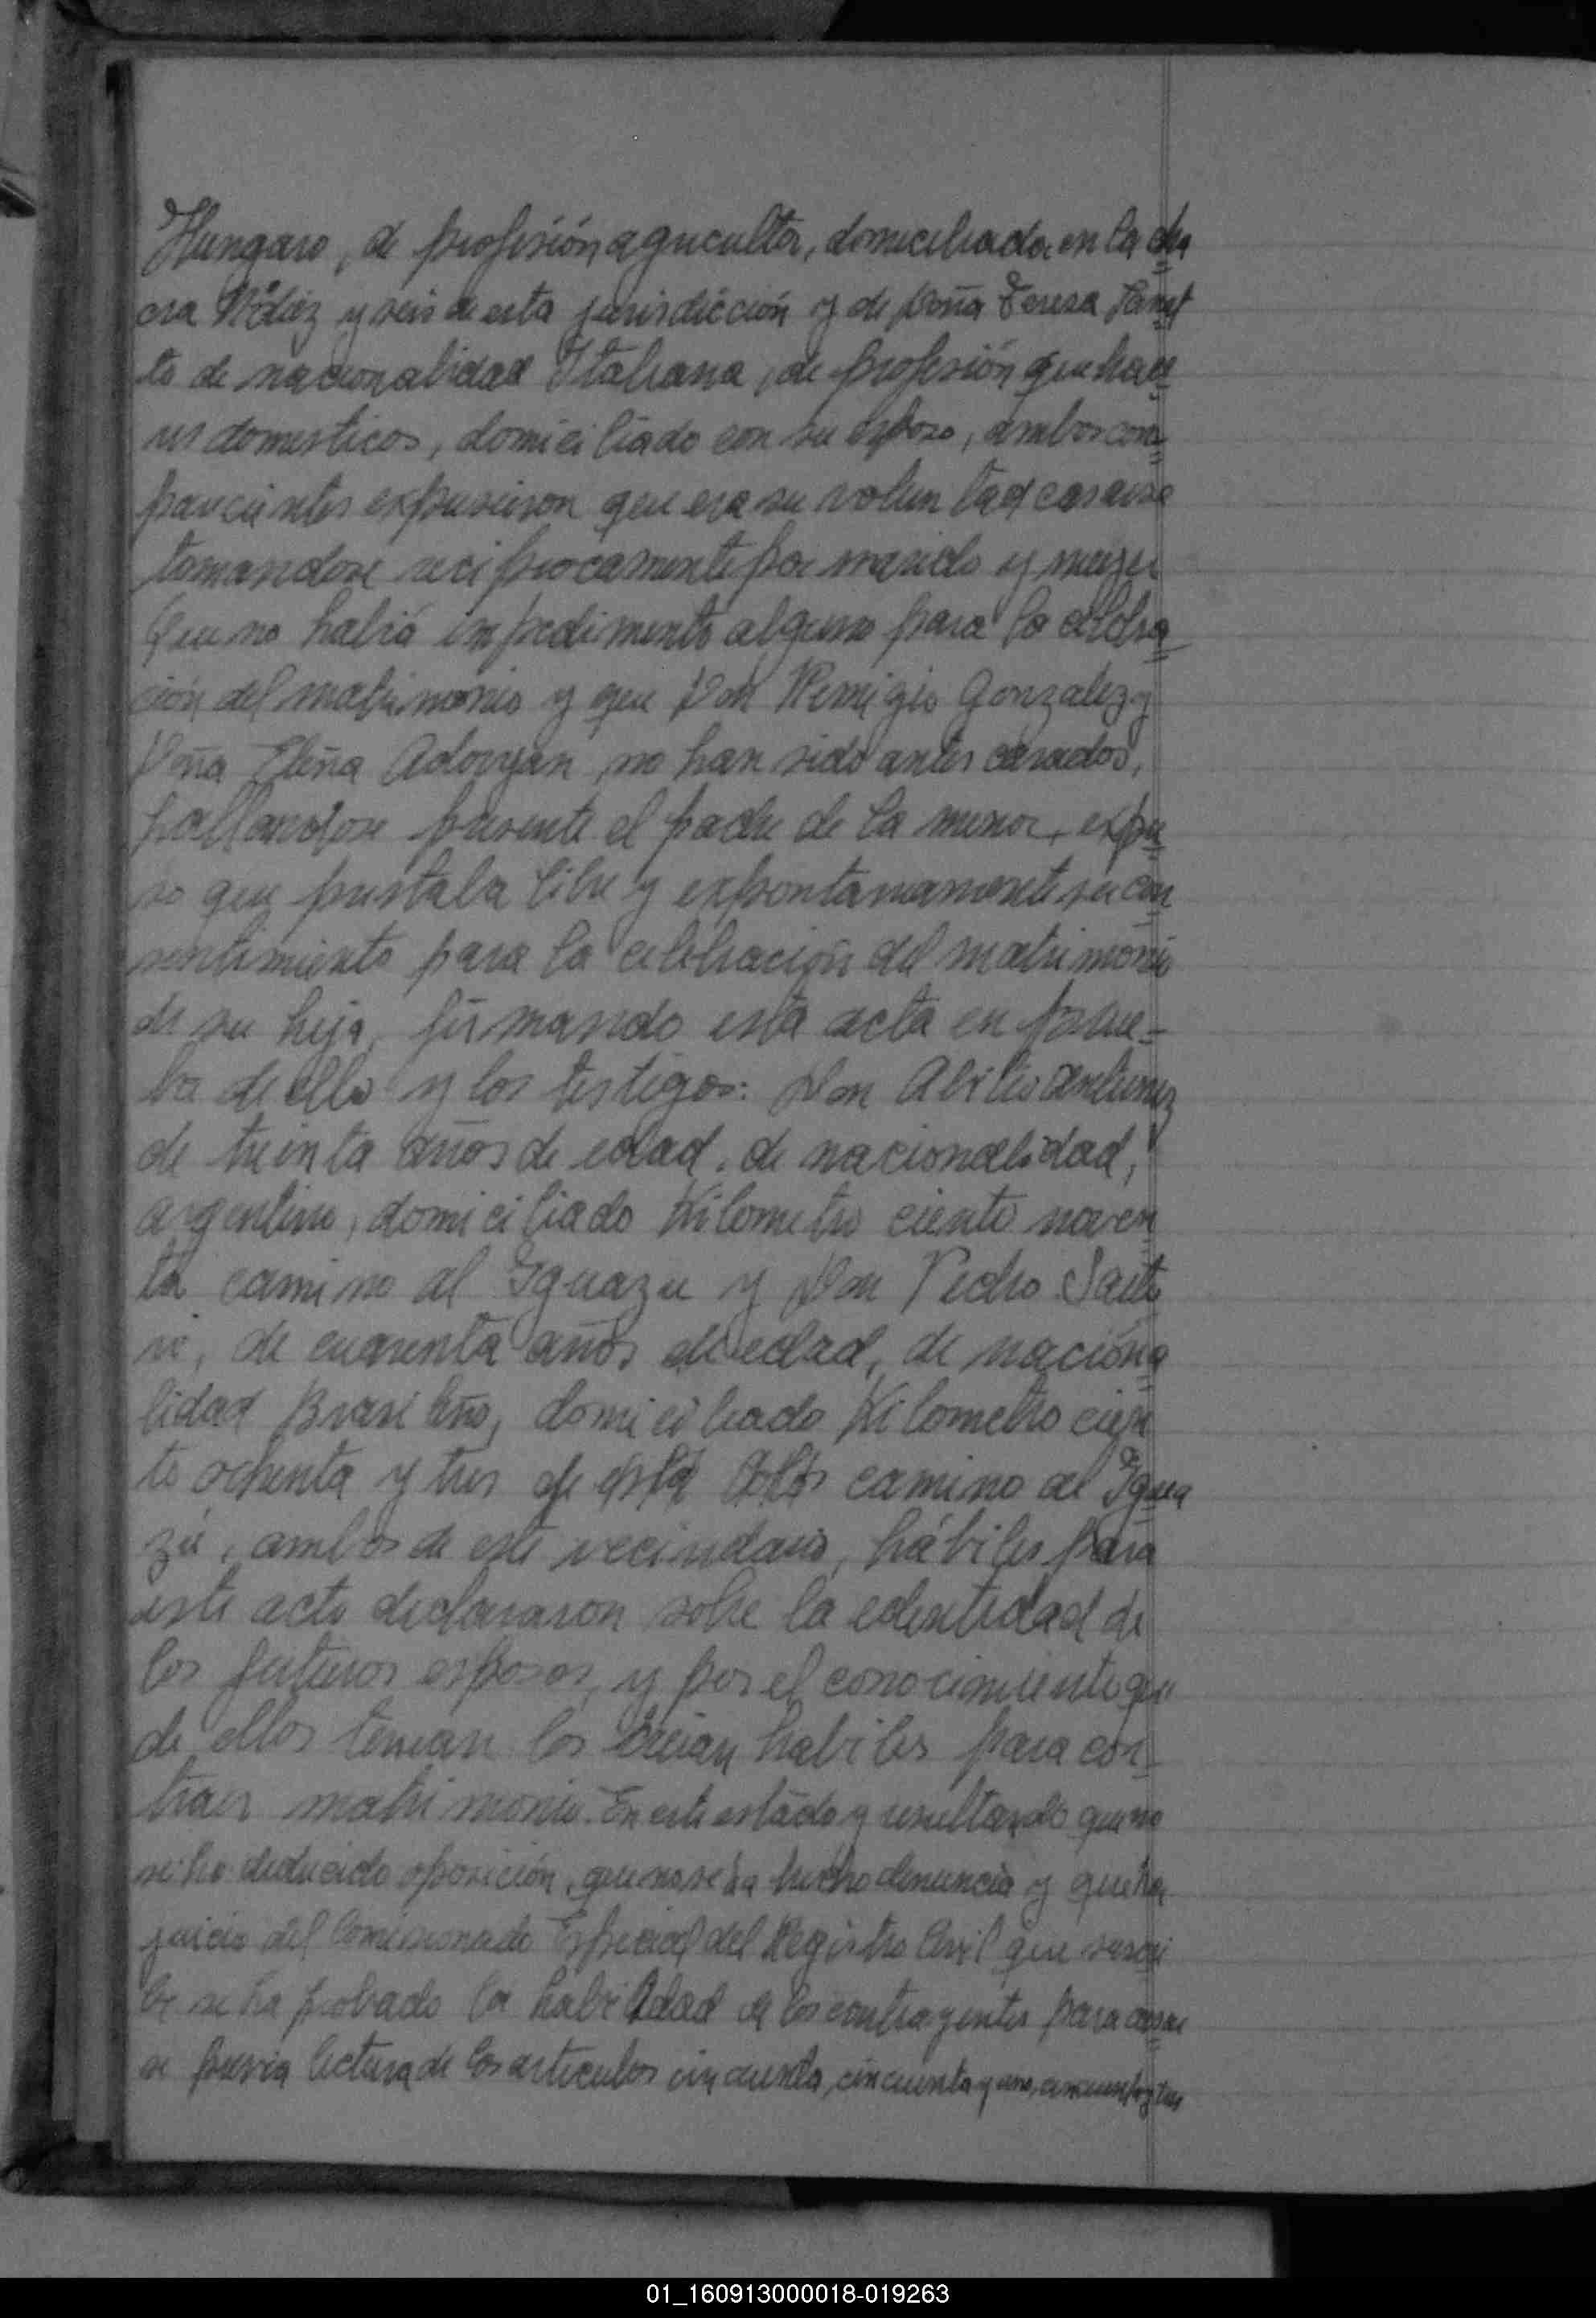 Hungaro, de profesión agricultor, domiciliada en la cha
cra Nº diez y seis de esta jurisdicción y de Doña Teresa
to de nacionalidad Italiana, de profesión quehace
res domesticos, domiciliado con su esposo, ambos con
parecientes expusieron que era su voluntad casarse
tomandose reciprocamente por marido y mujer
Que no había impedimento alguno para la celebra
ción del matrimonio y que Don Remigio Gonzalez y
Doña Eleña Adoryan, no han sido antes casados,
hallandose presente el padre de la menor, expu
so que prestaba libre y expontaneamente su con
sentimiento para la celebración del matrimonio
de su hija, firmando esta acta en prue-
ba de ello y los testigos: Don Abilio Antunez
de treinta años de edad, de nacionalidad,
argentino, domiciliado Kilometro ciento noven
ta camino al Iguazu y Don Pedro
ni, de cuarenta años de edad, de naciona
lidad Brasileño, domiciliado Kilometro cien
to ochenta y tres de esta camino al Igua
zú, ambos de este vecindario, hábiles para
este acto declararon sobre la edentidad de
los futuros esposos, y por el conocimiento que
de ellos tenían los creian habiles para con-
traer matrimonio. En este estado y resultando que no
se ha deducido oposición, que no se ha hecho denuncia y que ha
juicio del Comisionado Especial del Registro Civil que suscri
be se ha probado la habilidad de los contrayentes para casar
se previa lectura de los articulos cincuenta, cincuenta y uno, cincuenta y tres